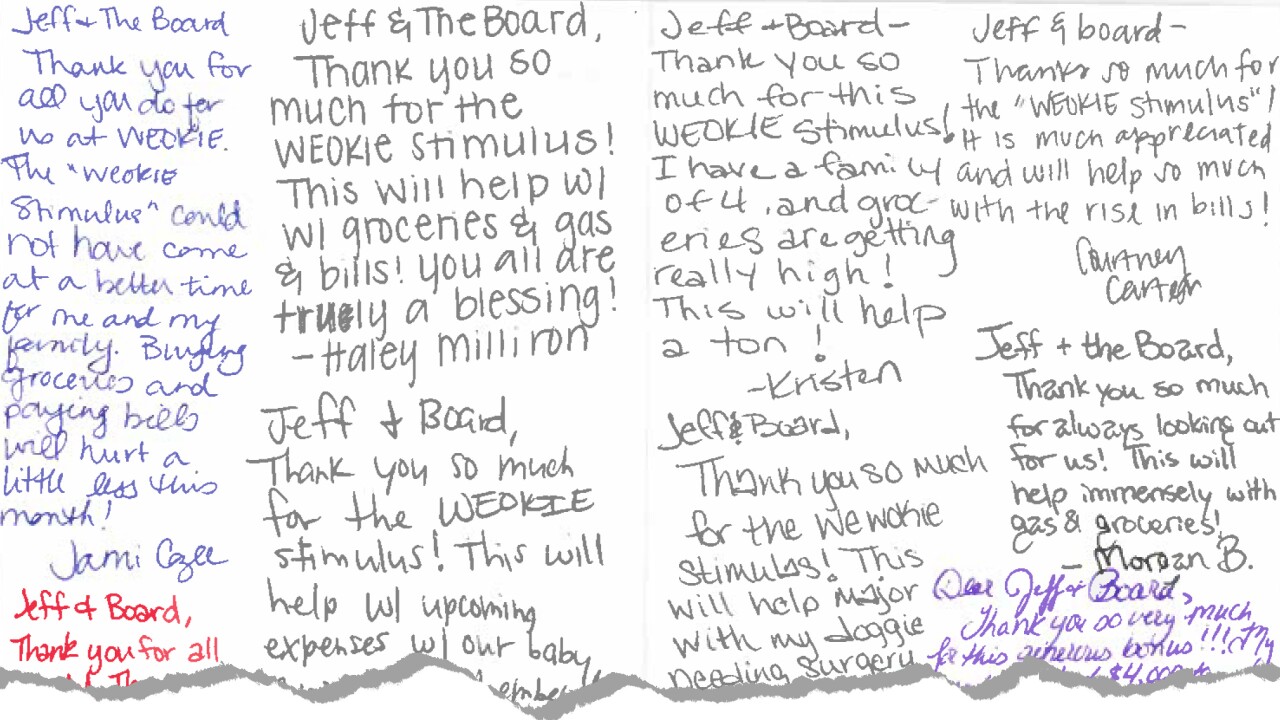 Jeff & The Board
Thank you for
all you do for
us at WEOKIE.
The "WEOKIE
Stimulus" could
not have come
at a better time
for me and my
family. Buying
groceries and
paying bills
will hurt a
little less this
month!
Jami Cozee
Jeff & Board,
Thank you for all
Jeff & The Board,
Thank you so
much for the
WEOKIE stimulus!
This will help w/
w/ groceries & gas
& bills! you all are
truely a blessing!
- Haley Milliron
Jeff & Board,
Thank you so much
for the WEOKIE
stimulus! This will
help w/ upcoming
expenses w/ our baby
Jeff & Board -
Thank you so
much for this
WEOKIE Stimulus!
I have a family
of 4, and groc-
eries are getting
really high!
This will help
a ton!
-Kristen
Jeff & Board,
Thank you so much
for the Wewokie
Stimulus! This
will help Major
with my doggie
needing surgery
Jeff & board -
Thanks so much for
the "WEOKIE stimulus"!
It is much appreciated
and will help so much
with the rise in bills!
Courtney
Carter
Jeff + the Board,
Thank you so much
for always looking out
for us! This will
help immensely with
gas & groceries!
- Morgan B.
Dear Jeff & Board,
Thank you so very much
for this generous bonus!!! My
$4,000